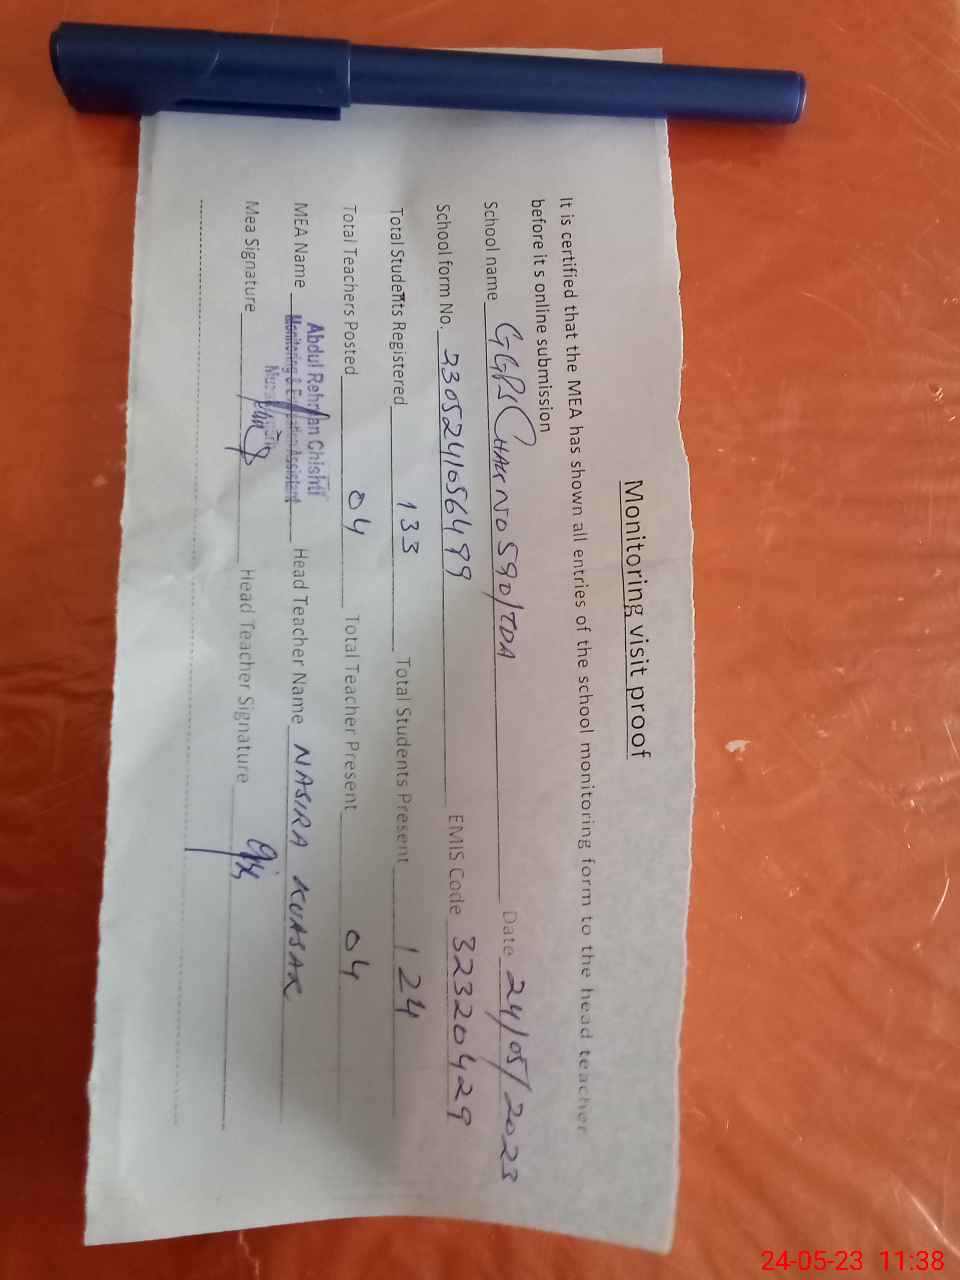 Monitoring visit proof
It is certified that the MEA has shown all entries of the school monitoring form to the head teacher
before it s online submission
School name GGPS CHAK NO 590/TDA Date 24/05/2023
School form No. 2305241056499 EMIS Code 32320429
Total Students Registered 133 Total Students Present 124
Total Teachers Posted 04 Total Teacher Present 04
MEA Name Abdul Rehman Chishti Head Teacher Name NASIRA KUASAR
Monitoring & Evaluation Assistant
Mea Signature Head Teacher Signature
24-05-23 11:38